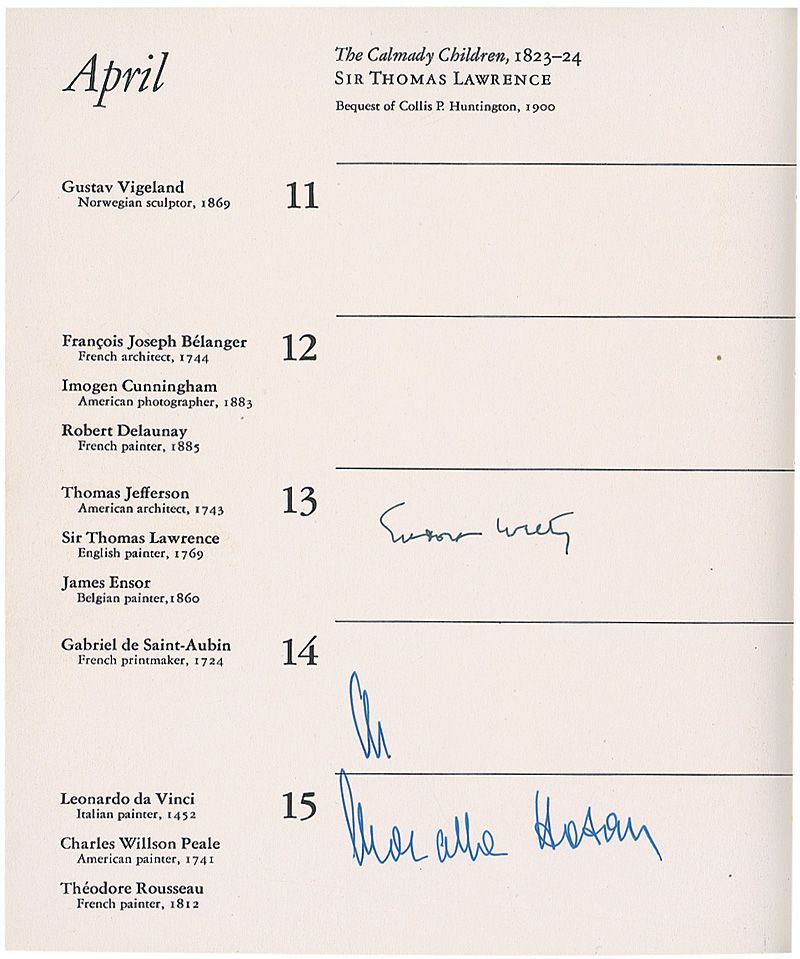 April
The Calmady Children, 1823–24
SIR THOMAS LAWRENCE
Bequest of Collis P. Huntington, 1900
Gustav Vigeland
Norwegian sculptor, 1869
11
François Joseph Bélanger
French architect, 1744
12
Imogen Cunningham
American photographer, 1883
Robert Delaunay
French painter, 1885
Thomas Jefferson
American architect, 1743
13
Sir Thomas Lawrence
English painter, 1769
James Ensor
Belgian painter, 1860
Gabriel de Saint-Aubin
French printmaker, 1724
14
Leonardo da Vinci
Italian painter, 1452
15
Charles Willson Peale
American painter, 1741
Théodore Rousseau
French painter, 1812